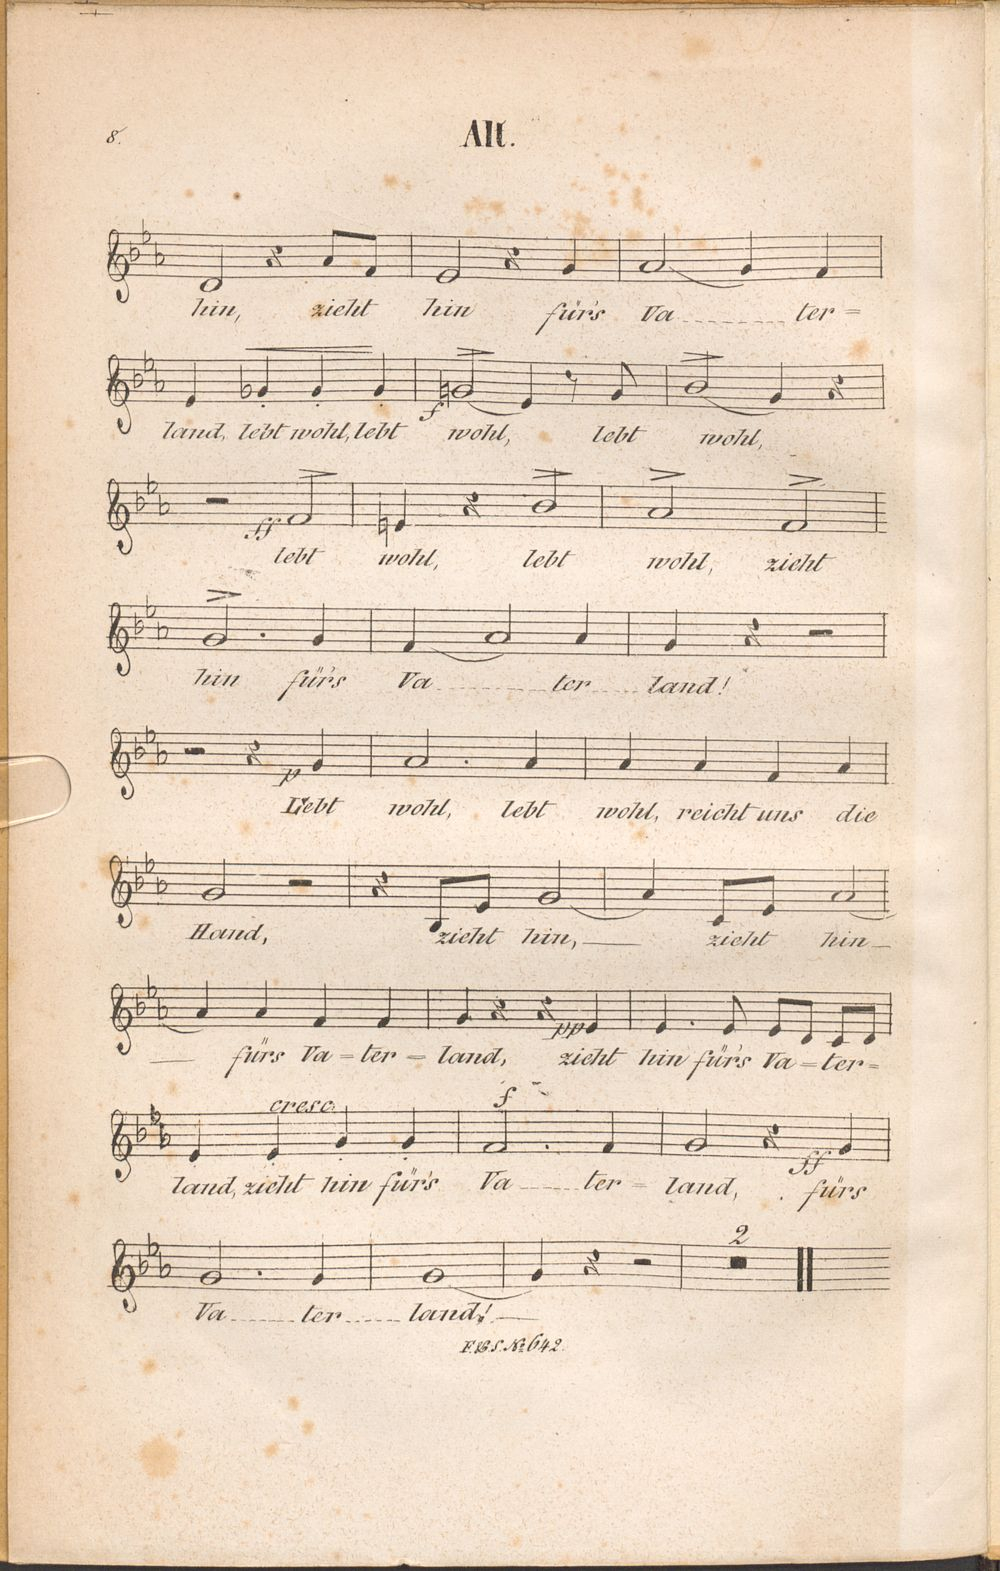 8.
Alt.
hin, zieht hin für's Va - - - - ter =
land, lebt wohl, lebt wohl, lebt wohl,
f
ff
lebt wohl, lebt wohl, zieht
hin für's Va - - - - ter - - - land!
p
Lebt wohl, lebt wohl, reicht uns die
Hand, zieht hin, — zieht hin —
pp
— fürs Va = ter = land, zieht hin für's Va = ter =
cresc. f
ff
land, zieht hin für's Va - - - ter = land, fürs
2
Va - - - - ter - - - - land! —
F.B.S. No 642.